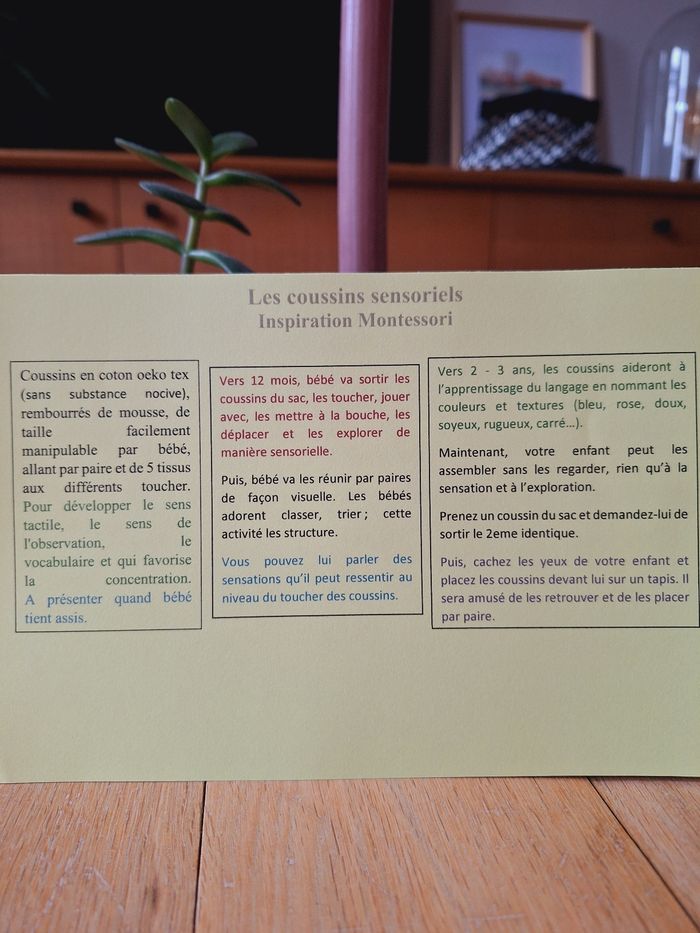 Les coussins sensoriels
Inspiration Montessori
Coussins en coton oeko tex
(sans substance nocive),
rembourrés de mousse, de
taille facilement
manipulable par bébé,
allant par paire et de 5 tissus
aux différents toucher.
Pour développer le sens
tactile, le sens de
l'observation, le
vocabulaire et qui favorise
la concentration.
A présenter quand bébé
tient assis.
Vers 12 mois, bébé va sortir les
coussins du sac, les toucher, jouer
avec, les mettre à la bouche, les
déplacer et les explorer de
manière sensorielle.
Puis, bébé va les réunir par paires
de façon visuelle. Les bébés
adorent classer, trier ; cette
activité les structure.
Vous pouvez lui parler des
sensations qu'il peut ressentir au
niveau du toucher des coussins.
Vers 2 - 3 ans, les coussins aideront à
l'apprentissage du langage en nommant les
couleurs et textures (bleu, rose, doux,
soyeux, rugueux, carré...).
Maintenant, votre enfant peut les
assembler sans les regarder, rien qu'à la
sensation et à l'exploration.
Prenez un coussin du sac et demandez-lui de
sortir le 2eme identique.
Puis, cachez les yeux de votre enfant et
placez les coussins devant lui sur un tapis. Il
sera amusé de les retrouver et de les placer
par paire.